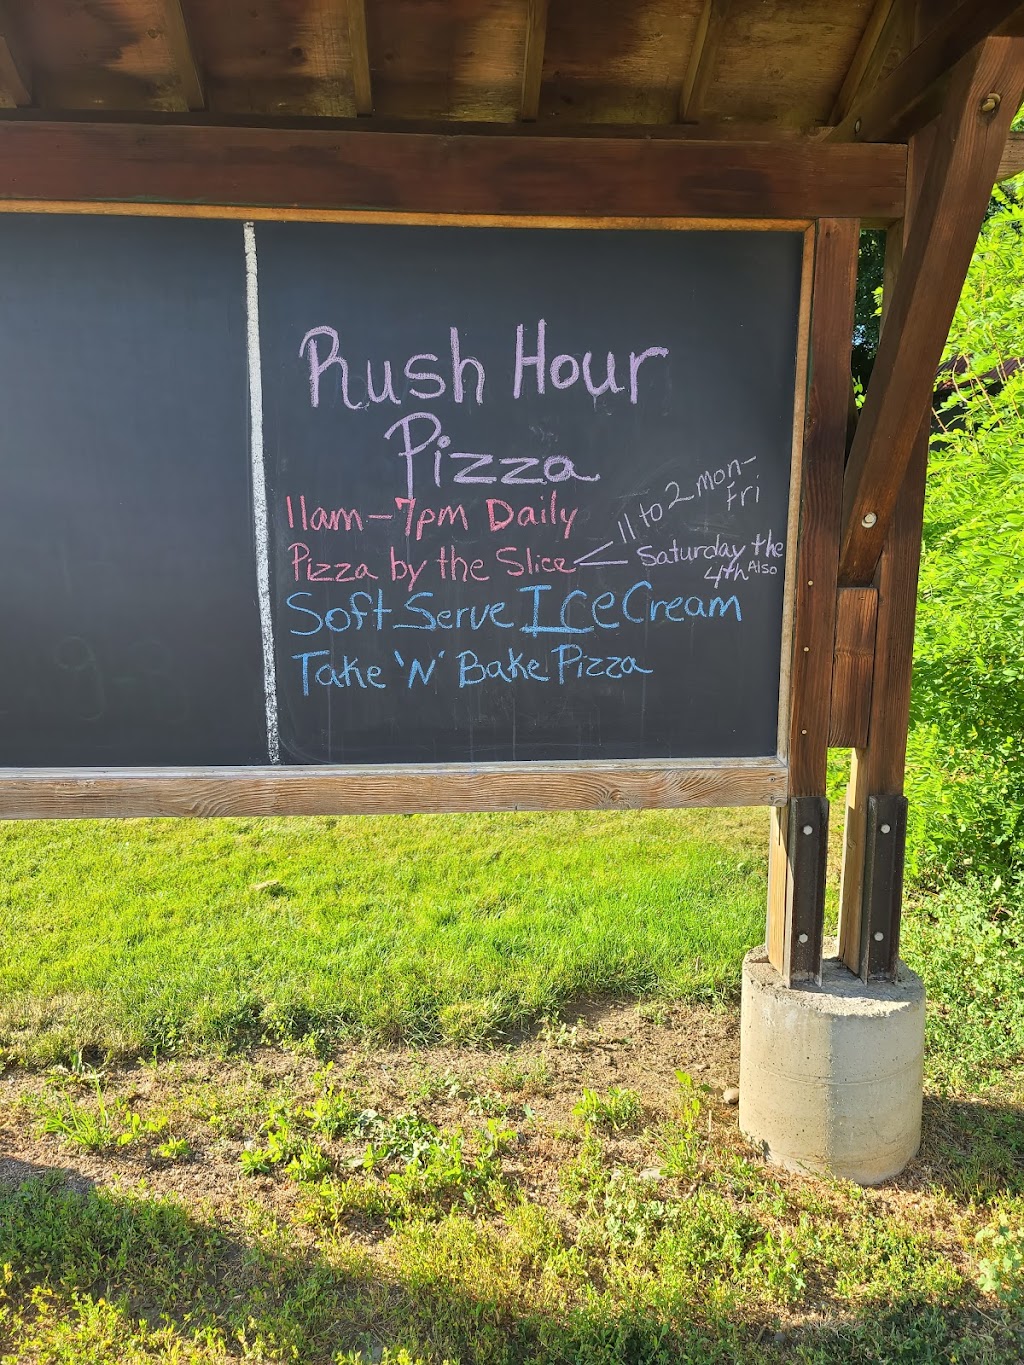 Rush Hour
Pizza
11am-7pm Daily
Pizza by the Slice
11 to 2 mon-
Fri
Saturday the
4th Also
Soft Serve ICe Cream
Take 'N' Bake Pizza